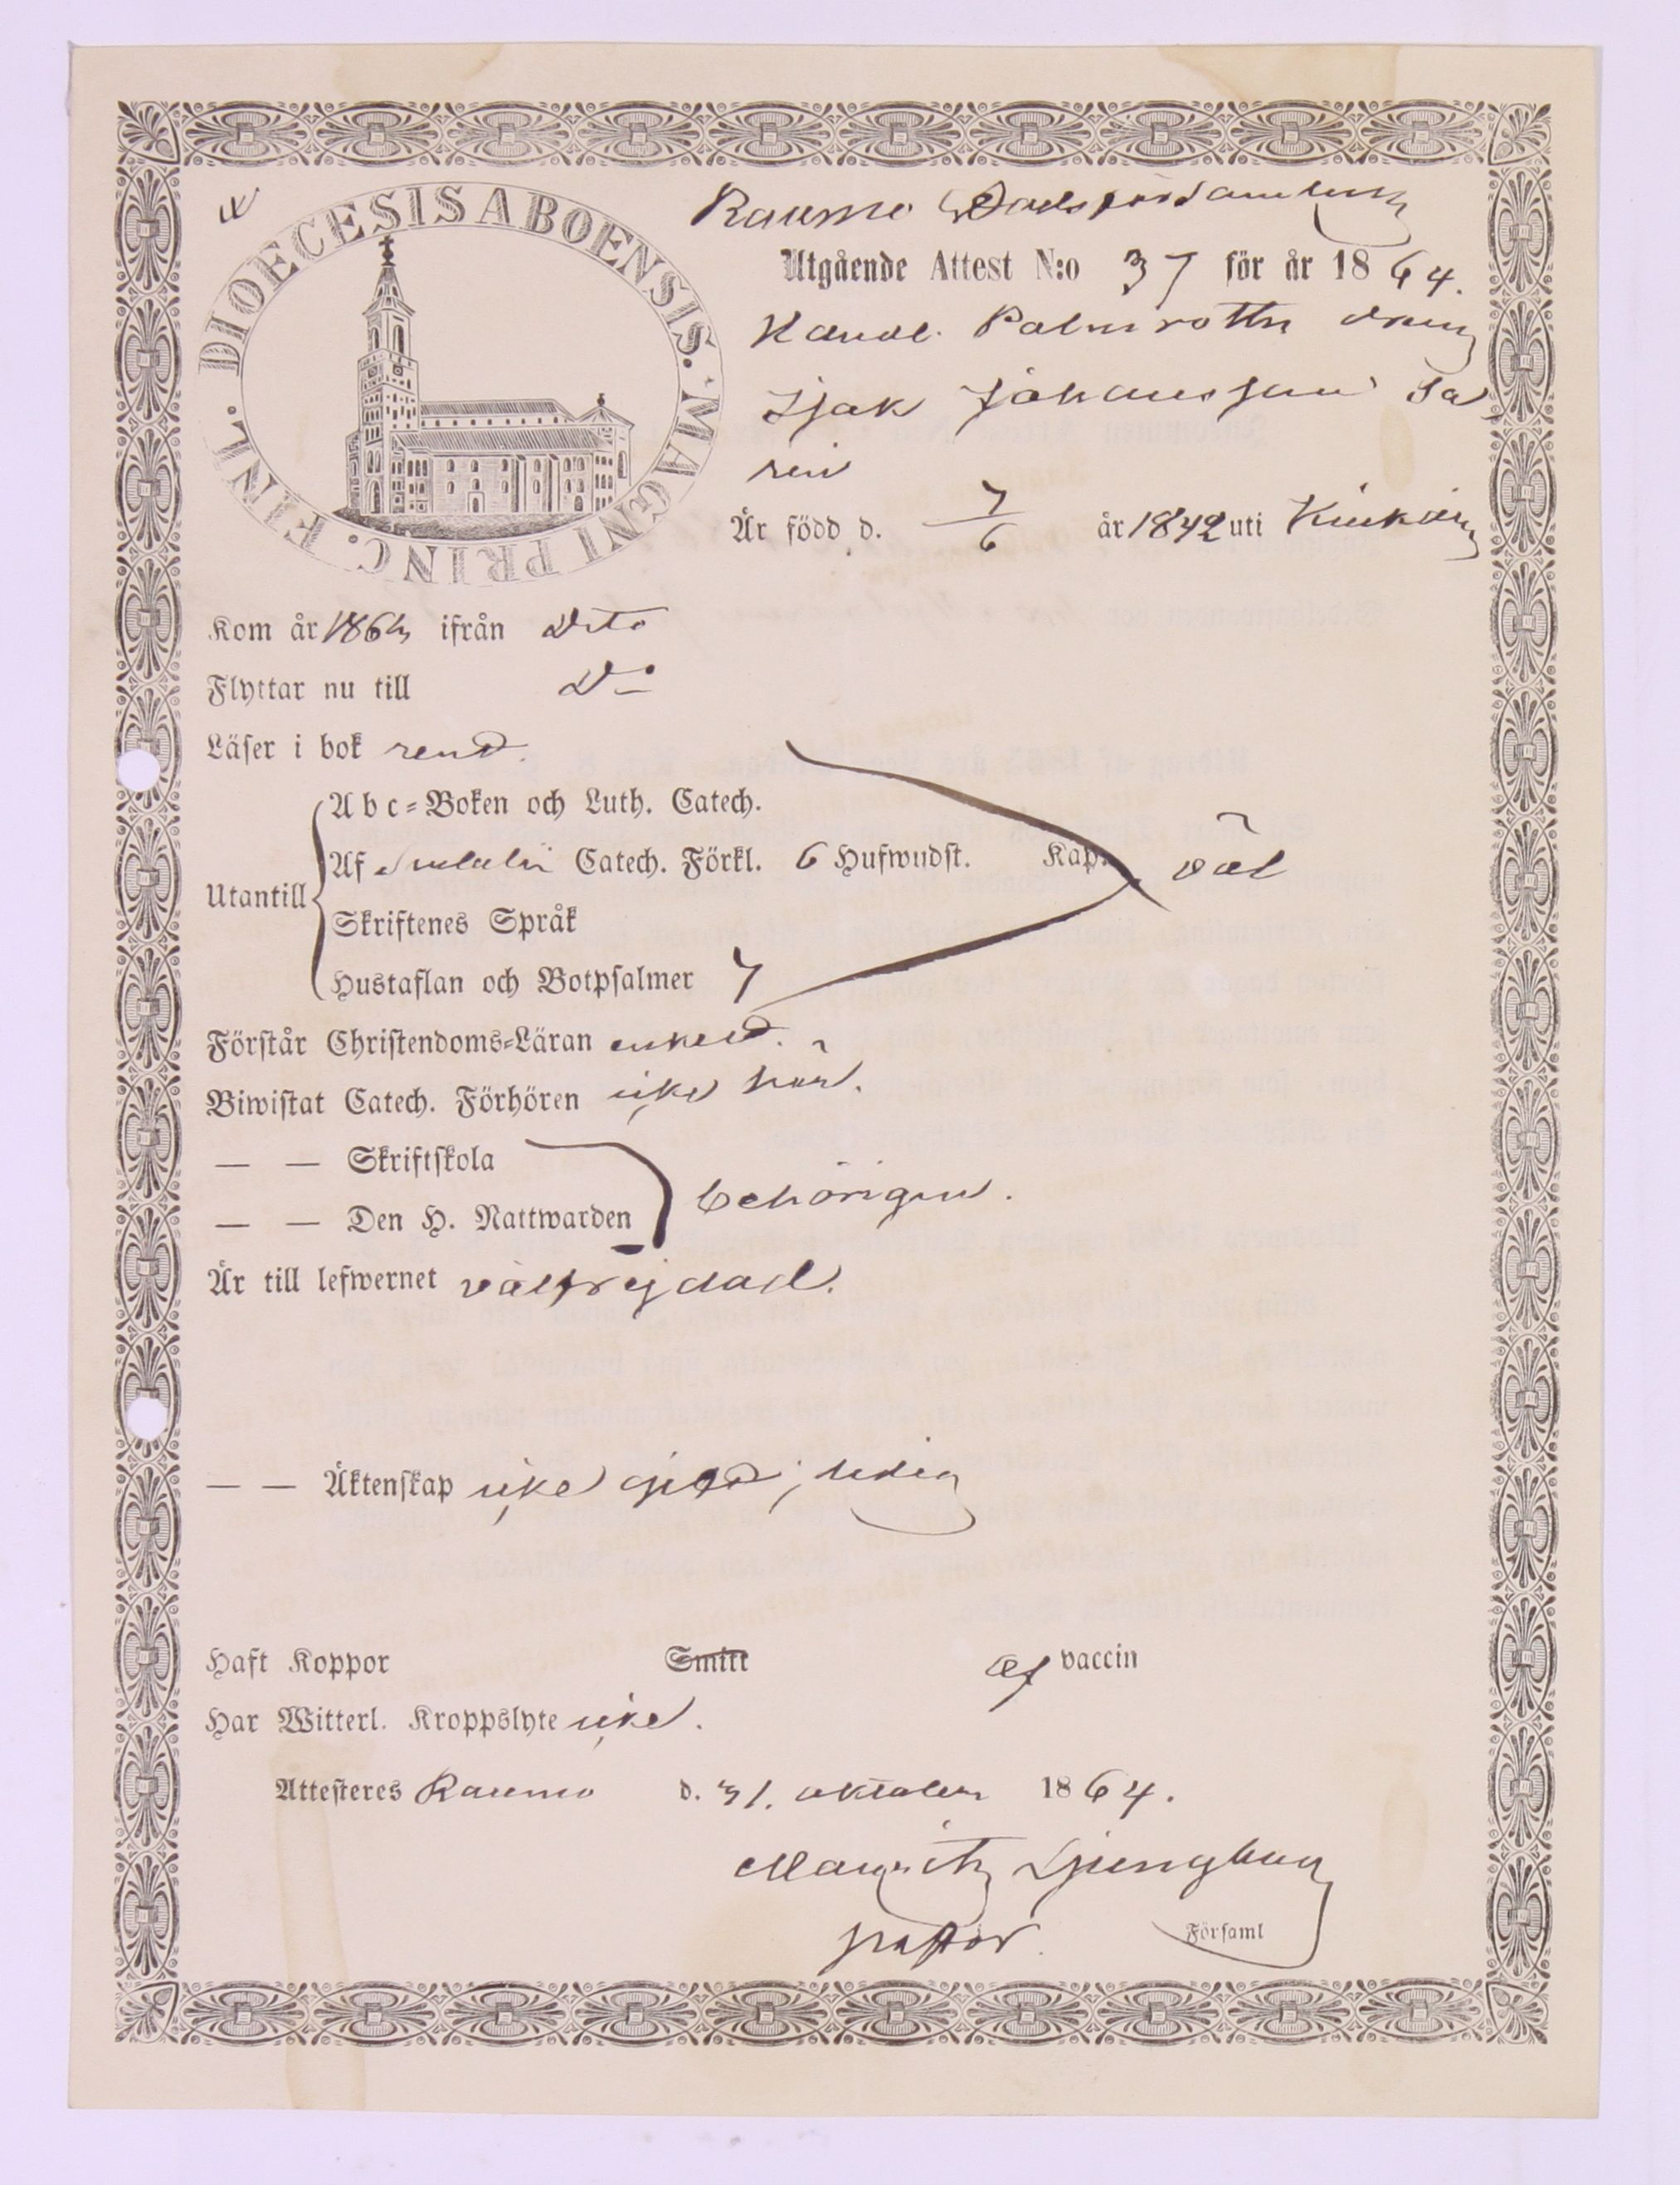 DIOECESIS ABOENSIS. MAGNI PRINC. FINL.
Raumo Stadsförsamling
Utgående Attest N:o 37 för år 1864.
Handl. Palmroths dräng
Isak Johansson Sa
ren
Är född d. 7/6 år 1842 uti Kiukais
Kom år 186 ifrån Dito
Flyttar nu till D:o
Läser i bok rent.
Utantill
Abc-Boken och Luth. Catech.
Af Svebelii Catech. Förkl. 6 Hufwudst. Kap. väl
Skriftenes Språk
Hustaflan och Botpsalmer 7
Förstår Christendoms-Läran enkelt.
Biwistat Catech. Förhören icke här.
— — Skriftskola
— — Den H. Nattwarden behörigen.
Är till lefwernet välfrejdad.
— — Äktenskap icke gift; ledig
Haft Koppor Smitt af vaccin
Har Witterl. Kroppslyte icke.
Attesteres Raumo d. 31. oktober 1864.
Mauritz Ljungberg
pastor. Församl